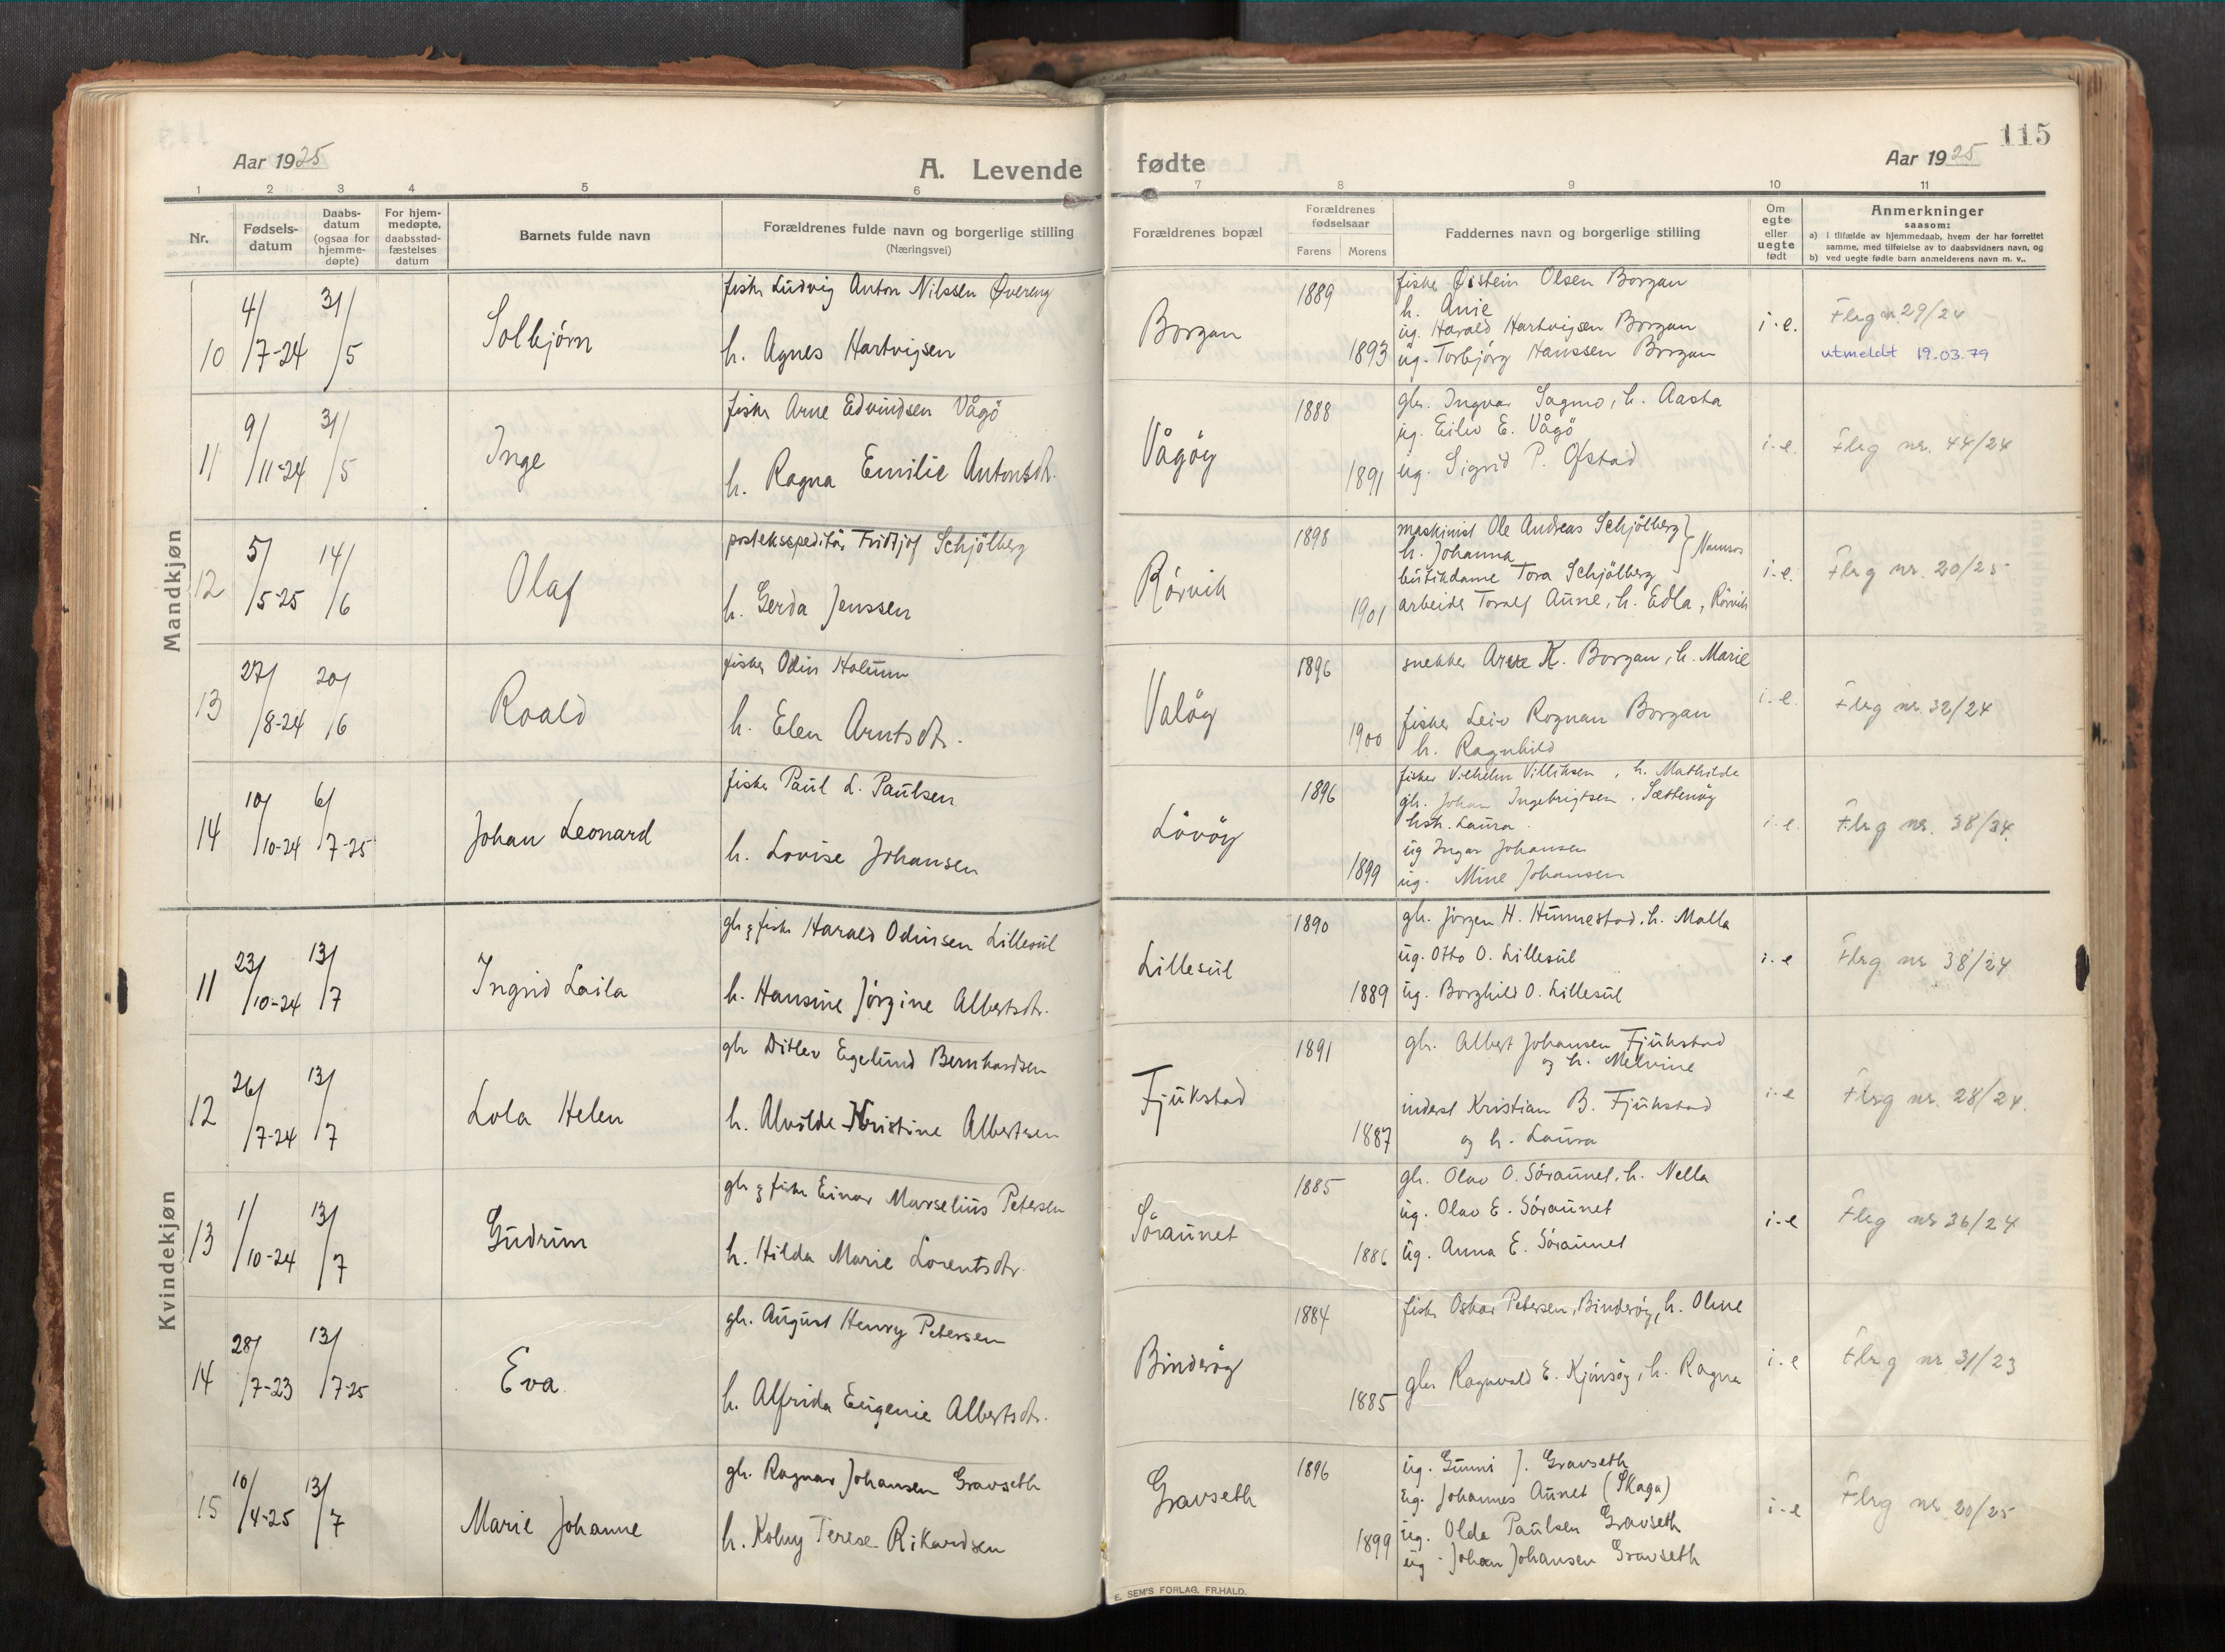 115
Aar 1925
A. Levende fødte
Aar 1925
1 2 3 4 5 6 7 8 9 10 11
Nr.
Fødsels-
datum
Daabs-
datum
(ogsaa for
hjemme-
døpte)
For hjem-
medøpte,
daabsstad-
fæstelses
datum
Barnets fulde navn
Forældrenes fulde navn og borgerlige stilling
(Næringsvei)
Forældrenes bopæl
Forældrenes
fødselsaar
Farens Morens
Faddernes navn og borgerlige stilling
Om
egte
eller
uegte
født
Anmerkninger
saasom:
a) i tilfælde av hjemmedaab, hvem der har forrettet
samme, med tilføielse av to daabsvidners navn, og
b) ved uegte fødte barn anmelderens navn m. v..
Mandkjøn
10 4/7-24 31/5 Solbjørn
fisker Ludvig Anton Nilssen Øvereng
h. Agnes Hartvigsen
Borgan 1889 1893
fisker Øistein Olsen Borgan
h. Anie
ug. Harald Hartvigsen Borgan
ug. Torbjörg Hanssen Borgan
i.e. Flrg nr 29/24
utmeldt 19.03.79
11 9/11-24 31/5 Inge
fisker Arne Edvindsen Vågö
h. Ragna Emilie Antonsdtr.
Vågöy 1888 1891
gbr. Ingvar Sagmo, h. Aasta
ug. Eiliv E. Vågö
ug. Sigrid P. Ofstad
i.e. Flrg nr. 44/24
12 5/5-25 14/6 Olaf
postekspeditör Fridtjof Schjölberg
h. Gerda Jenssen
Rörvik 1898 1901
maskinist Ole Andreas Schjölberg
h. Johanna
butikdame Tora Schjölberg
Namsos
arbeider Toralf Aune, h. Edla, Rörvik
i.e. Flrg nr. 20/25
13 27/8-24 20/6 Roald
fisker Odin Holum
h. Elen Arntsdtr.
Valöy 1896 1900
snekker Arne K. Borgan, h. Marie
fisker Leiv Rognan Borgan
h. Ragnhild
i.e. Flrg nr. 32/24
14 10/10-24 6/7-25 Johan Leonard
fisker Paul L. Paulsen
h. Lovise Johansen
Lövöy 1896 1899
fisker Vilhelm Villiksen, h. Mathilde
gbr. Johan Ingebrigtsen, Sætternöy
hstr. Laura
ug Ingar Johansen
ug. Mine Johansen
i.e. Flrg nr. 38/24
Kvindekjøn
11 23/10-24 13/7 Ingrid Laila
gbr & fisker Harald Odinsen Lillesul
h. Hansine Jörgine Albertsdtr.
Lillesul 1890 1889
gbr. Jörgen H. Hunnestad, h. Malla
ug. Otto O. Lillesul
ug. Borghild O. Lillesul
i.e Flrg nr 38/24
12 26/7-24 13/7 Lola Helen
gbr Ditlev Egelund Bernhardsen
h. Alvilde Kristine Albertsen
Fjukstad 1891 1887
gbr. Albert Johansen Fjukstad
og h. Melvine
inderst Kristian B. Fjukstad
og h. Laura
i.e Flrg nr. 28/24.
13 1/10-24 13/7 Gudrun
gbr & fisker Einar Marselius Petersen
h. Hilda Marie Lorentsdtr.
Söraunet 1885 1886
gbr. Olav O. Söraunet, h. Nella
ug. Olav E. Söraunet
ug. Anna E. Söraunet
i.e Flrg nr 36/24
14 28/7-23 13/7-25 Eva
gbr. August Henry Petersen
h. Alfrida Eugenie Albertsdtr.
Binderöy 1884 1885
fisker Oskar Petersen, Binderöy, h. Oline
gbr Ragnvald E. Kjönsöy, h. Ragna
i.e Flrg nr 31/23
15 10/4-25 13/7 Marie Johanne
gbr. Ragnar Johansen Gravseth
h. Kolny Terese Rikardsen
Gravseth 1896 1899
ug. Gunni J. Gravseth
ug. Johannes Aunet (Skaga)
ug. Olda Paulsen Gravseth
ug. Johan Johansen Gravseth
i.e Flrg nr 20/25
E. SEM'S FORLAG, FR.HALD.